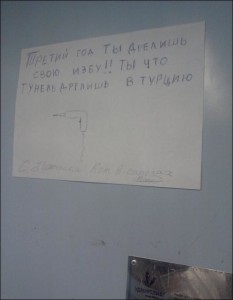 ТРЕТИЙ ГОД ТЫ ДРЕЛИШЬ
СВОЮ ИЗБУ!! ТЫ ЧТО
ТУНЕЛЬ ДРЕЛИШЬ В ТУРЦИЮ
С